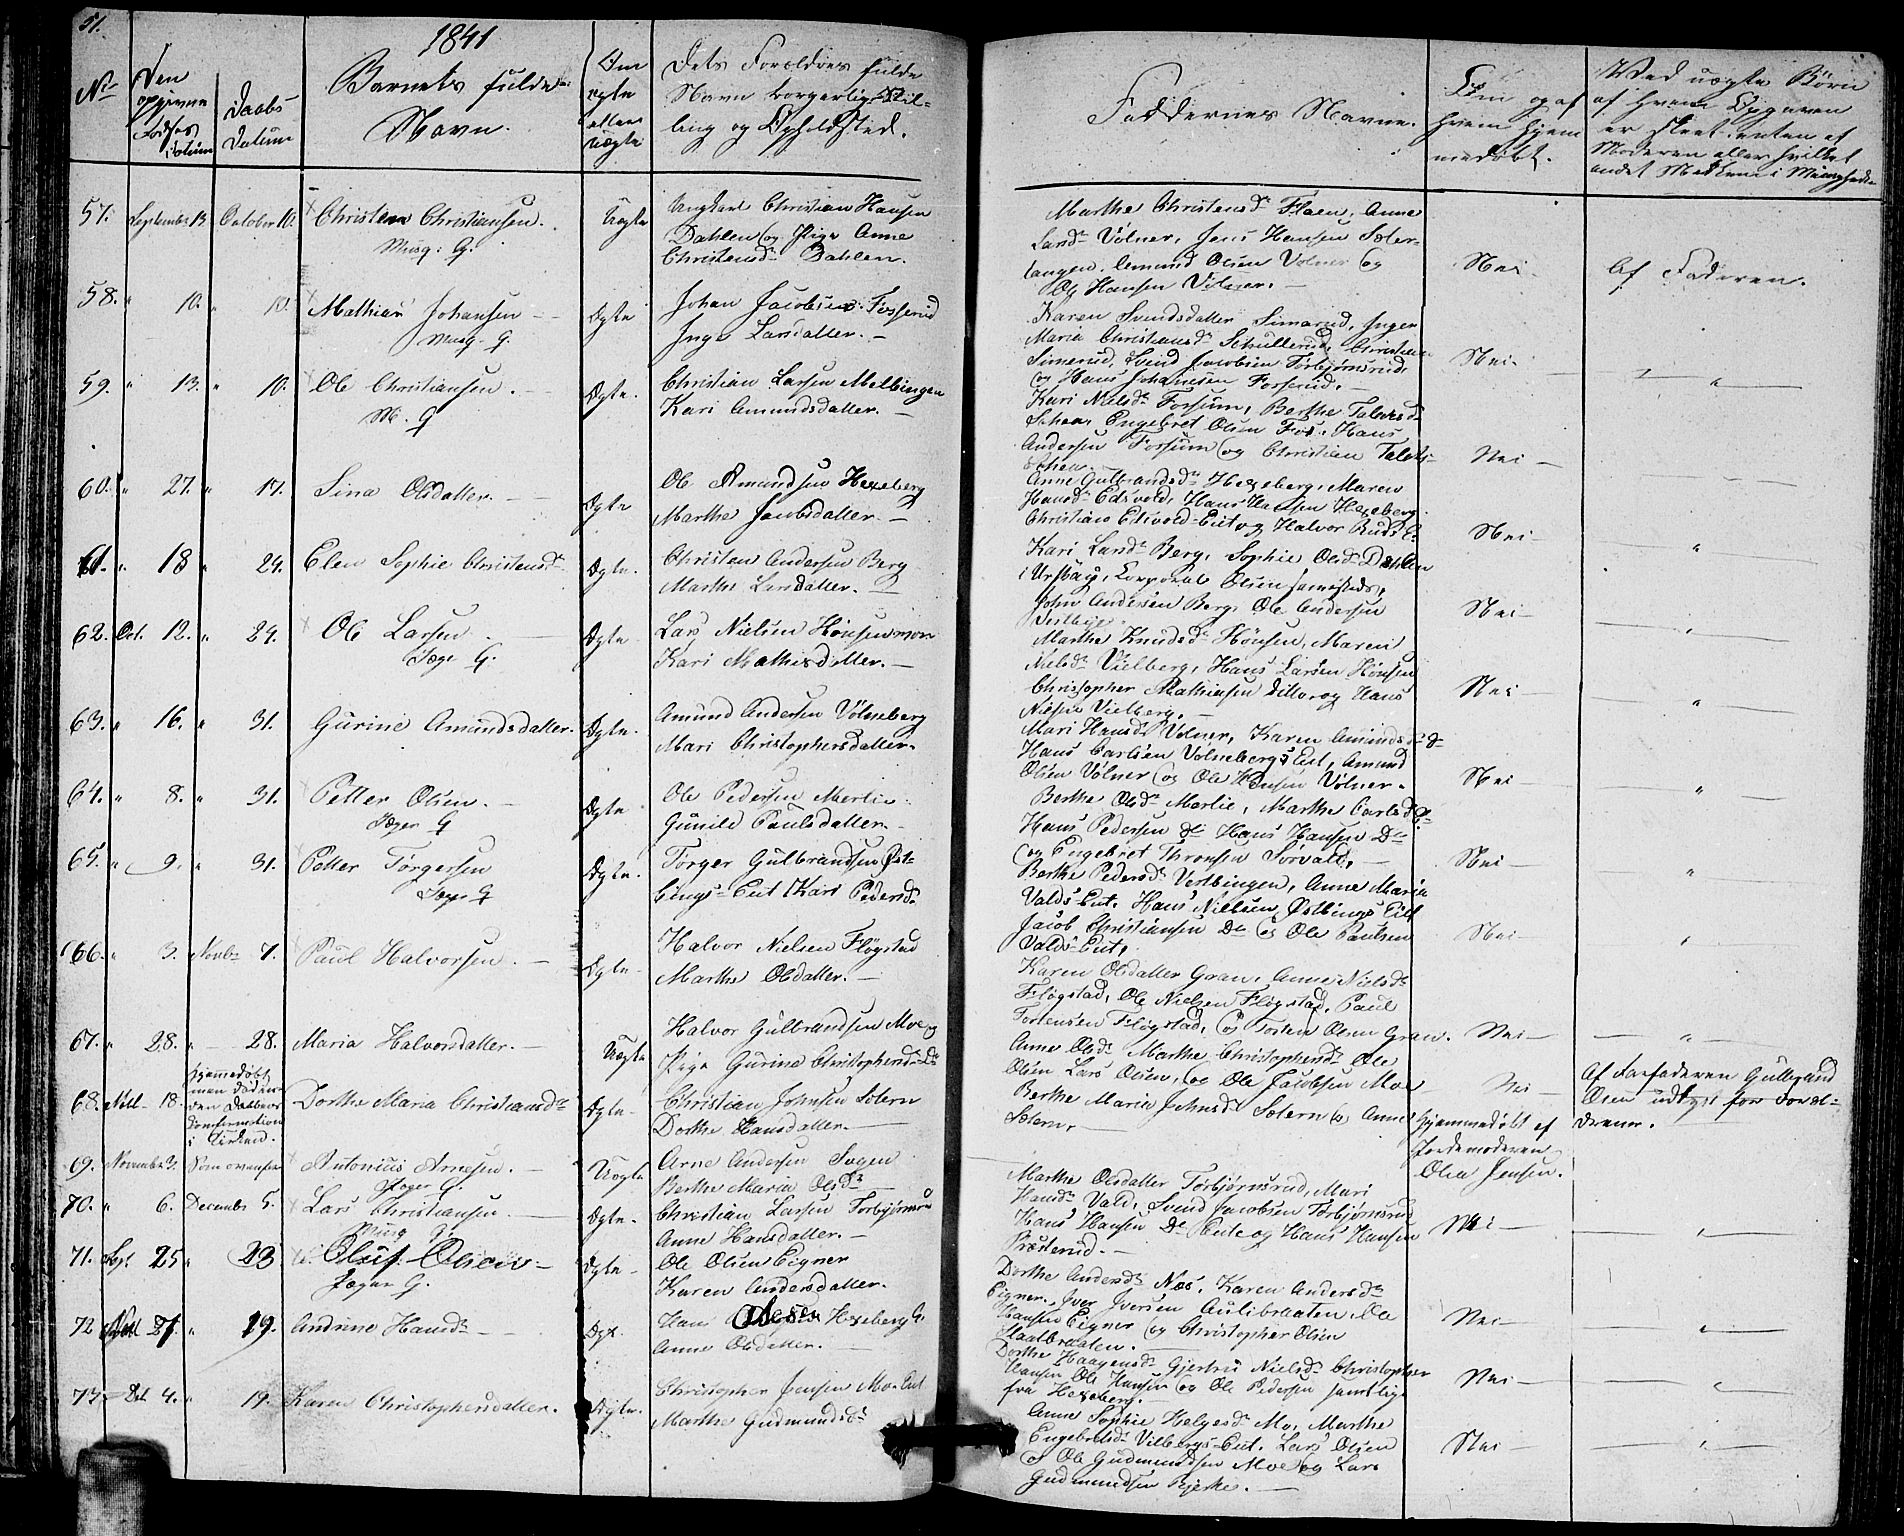 51.
1841
No
Den opgivne Fødsels datum
Daabs Datum
Barnets fulde Navn.
Om ægte eller uægte
Dets Forældres fulde Navn borgerlig Stilling og Opholdsted.
Faddernes Navne.
Om og af hvem hjemmedøbt.
Ved uægte Børn af hvem Opgaven er skeet enten af Moderen eller hvilket andet Medkomme i Myndighed
57. September 13. October 10. Christen Christiansen. Uægte Ungkarl Christian Hansen
Musg: G. Dahlen og Pige Anne
Christensdr Dahlen.
Marthe Christensdr Flaen, Anne
Larsdr Volner, Jens Hansen Sæter-
langen. Amund Olsen Volner og
Ole Hansen Volner. Nei Af Faderen.
58. " 10. " 10. Mathias Johansen Ægte Johan Jacobsen Fosserud
Musg. G. Inge Larsdatter.
Karen Svendsdatter Simerud, Inger
Maria Christiansdr Schullerud, Christian
Simerud, Svend Jacobsen Torbjørnsrud,
og Hans Johannesen Fosserud. Nei "
59. " 13. " 10. Ole Christiansen. Ægte. Christian Larsen Melbingen
M. G Kari Amundsdatter.
Kari Nielsdr Forsum, Berthe Talvesd
Schea, Engebret Olsen Fos. Hans
Andersen Forsum og Christian Talets-
schea. Nei
60. " 27. " 17. Lina Olsdatter. Ægte Ole Amundsen Hexeberg
Marthe Jacobsdatter.
Anne Gulbrandsdr Hexeberg, Maren
Hansdr Edsvold, Hans Hansen Hexeberg.
Christian Edsvold-Eiet og Halvor Ruds E. Nei "
61. " 18 " 24. Elen Sophie Christensdr Ægte. Christen Andersen Berg
Marthe Larsdatter.
Kari Larsdr Berg, Sophie Olsdr Dahlen
i Urskog, Corporal Olsen sammesteds,
John Andersen Berg, Ole Andersen
Vestbye. Nei "
62. Oct. 12. " 24. Ole Larsen Ægte Lars Nielsen Hønsenmoen
Jæger G. Kari Mathisdatter.
Marthe Knudsdr Hønsen, Maren
Nielsdr Vielberg, Hans Larsen Hønsen
Christopher Mathiesen ditto og Hans
Nielsen Vielberg. Nei "
63. " 16. " 31. Gurine Amundsdatter. Ægte. Amund Andersen Volneberg
Mari Christophersdatter.
Mari Hansdr Volner, Karen Amundsdr
Hans Carlsen Volnebergs Eiet, Amund
Olsen Volner og Ole Hansen Volner. Nei "
64. " 8. " 31. Petter Olsen. Ægte Ole Pedersen Merlie
Jæger G Gunild Paulsdatter.
Berthe Olsdr Merlie, Marthe Carlsdr
Hans Pedersen do Hans Hansen Do
og Engebret Thronsen Sorvald. Nei "
65. " 9. " 31. Petter Torgersen Ægte. Torger Gulbrandsen Øst-
Jæger G bings-Eiet Kari Pedersd.
Berthe Pedersdr Vestbingen, Anne Maria
Valds-Eiet. Hans Nielsen Østbings Eiet
Jacob Christiansen Do og Ole Paulsen
Valds-Eiet. Nei "
66. " 3. Novbr 7. Paul Halvorsen. Ægte. Halvor Nielsen Fløgstad
Marthe Olsdatter.
Karen Olsdatter Gran, Anne Nielsdr
Fløgstad, Ole Nielsen Fløgstad, Paul
Torstensen Fløgstad, og Torsten Olsen Gran. Nei "
67. " 28. " 28. Maria Halvorsdatter. Uægte Halvor Gulbrandsen Moe og
Pige Gurine Christophersdr Do
Anne Olsdr Marthe Christophersdr Ole
Olsen Lars Olsen, og Ole Jacobsen Moe Nei Af Farfaderen Gulbrand
Olsen udlagt for Foræl-
drene.
68. Octbr 18. Hjemmedøbt men døde inden Daabens Confirmation i Kirken. Dorthe Maria Christiansdr Ægte Christian Johnsen Sotern
Dorthe Hansdatter.
Berthe Maria Johnsdr Sotern og Anne
Sotern. Hjemmedøbt af
Jordemoderen
Olea Jensen.
69. November 3. Som ovenfor Antonius Arnesen. Uægte Arne Andersen Sogen
Jæger G. Berthe Maria Olsdr
70. " 6. December 5. Lars Christiansen Ægte. Christian Larsen Torbjørnsrud
Musq G. Anne Hansdatter.
Marthe Olsdatter Torbjørnsrud, Mari
Hansdr Vald, Svend Jacobsen Torbjørnsrud
Hans Hansen Do Eiet og Hans Hansen
Præsterud. Nei "
71. Sept 25 " 23 Oluf Olsen Ægte Ole Olsen Eigner
Jæger G. Karen Andersdatter.
Dorthe Andersdr Næs, Karen Andersdr
Eigner, Iver Iversen Aulibraaten, Ole
Hansen Eigner og Christopher Olsen
Haalbraaten. Nei "
72 Octbr 27. " 19. Andrine Hansdr Ægt. Hans Olesen Hexeberg
Anne Olsdatter.
Dorthe Haagensdr Gjertrud Nielsdr Christopher
Hansen Ole Hansen og Ole Pedersen samtlige
fra Hexeberg. Nei "
73 Oct 4. " 19. Karen Christophersdatter. Ægte. Christopher Jensen Mo-Eiet
Marthe Gudmundsdr
Anne Sophie Helgesdr Mo, Marthe
Engebretsdr Vilbergs-Eiet. Lars Olsen
og Ole Gudmundsen Moe og Lars
Gudmundsen Bjerke. Nei "